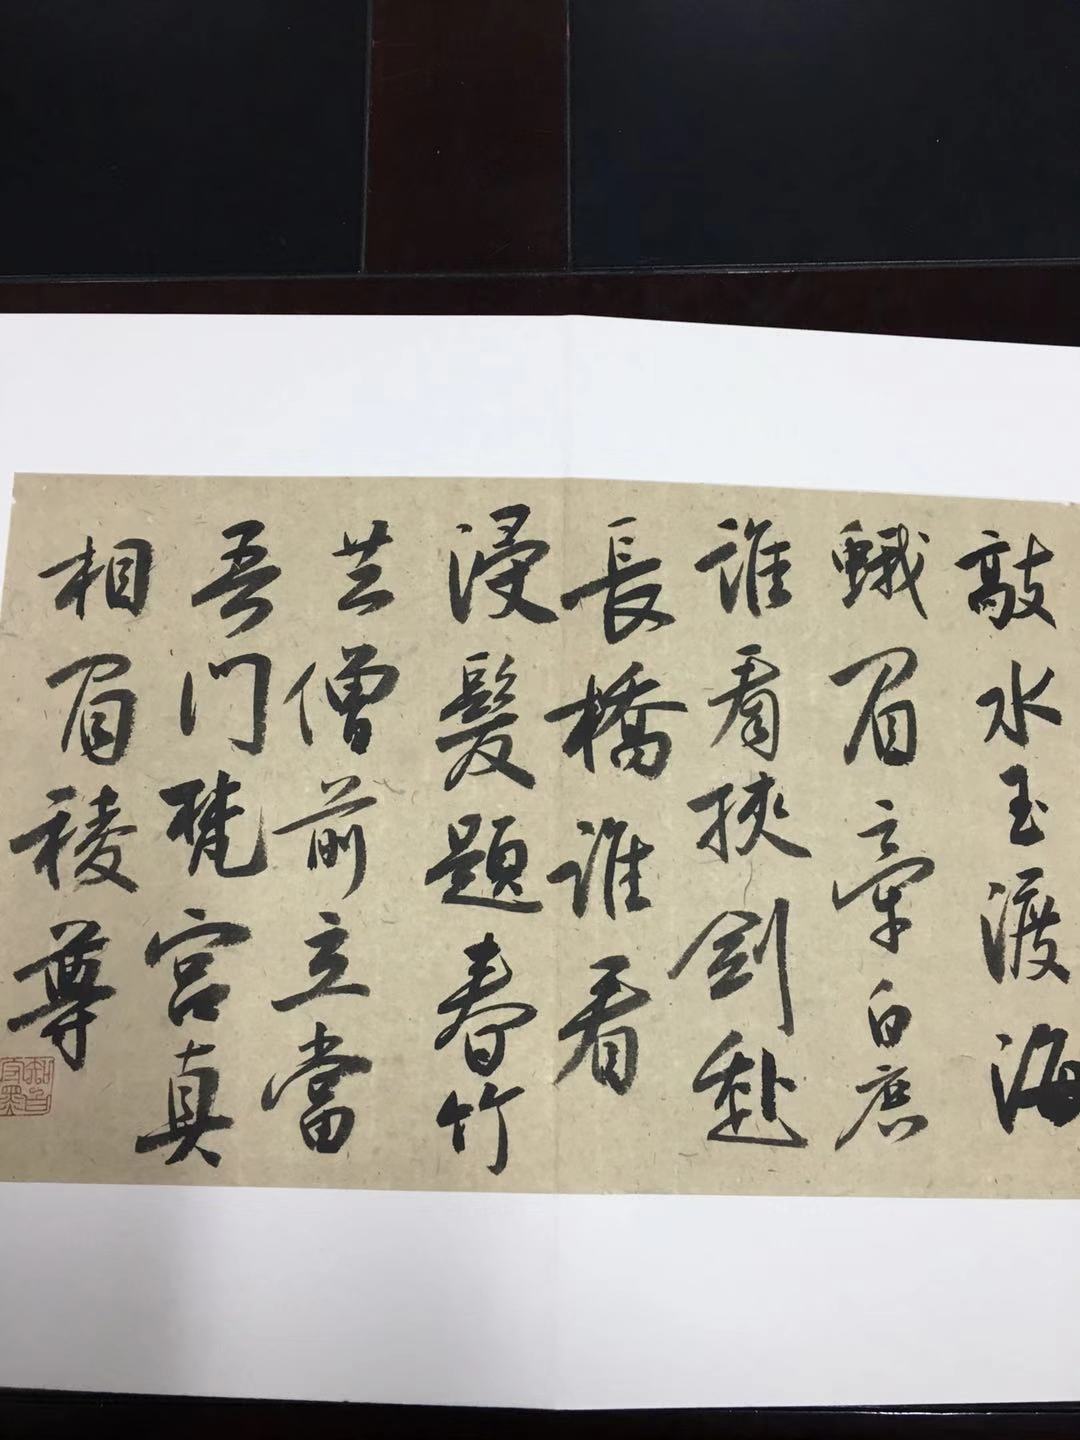 敲水玉渡海
蛾眉牽白鹿
誰看挾劍赴
長橋誰看
浸髮題春竹
竺僧前立當
吾門梵宮真
相眉稜尊